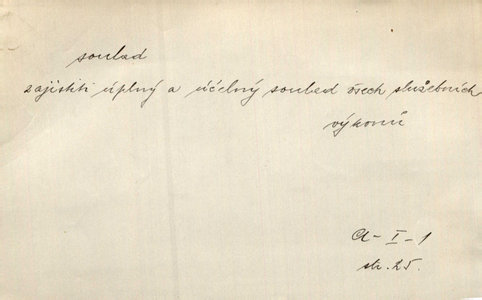 soulad
zajistiti úplný a účelný soulad všech služebních
výkonů
A-I-1
str. 25.